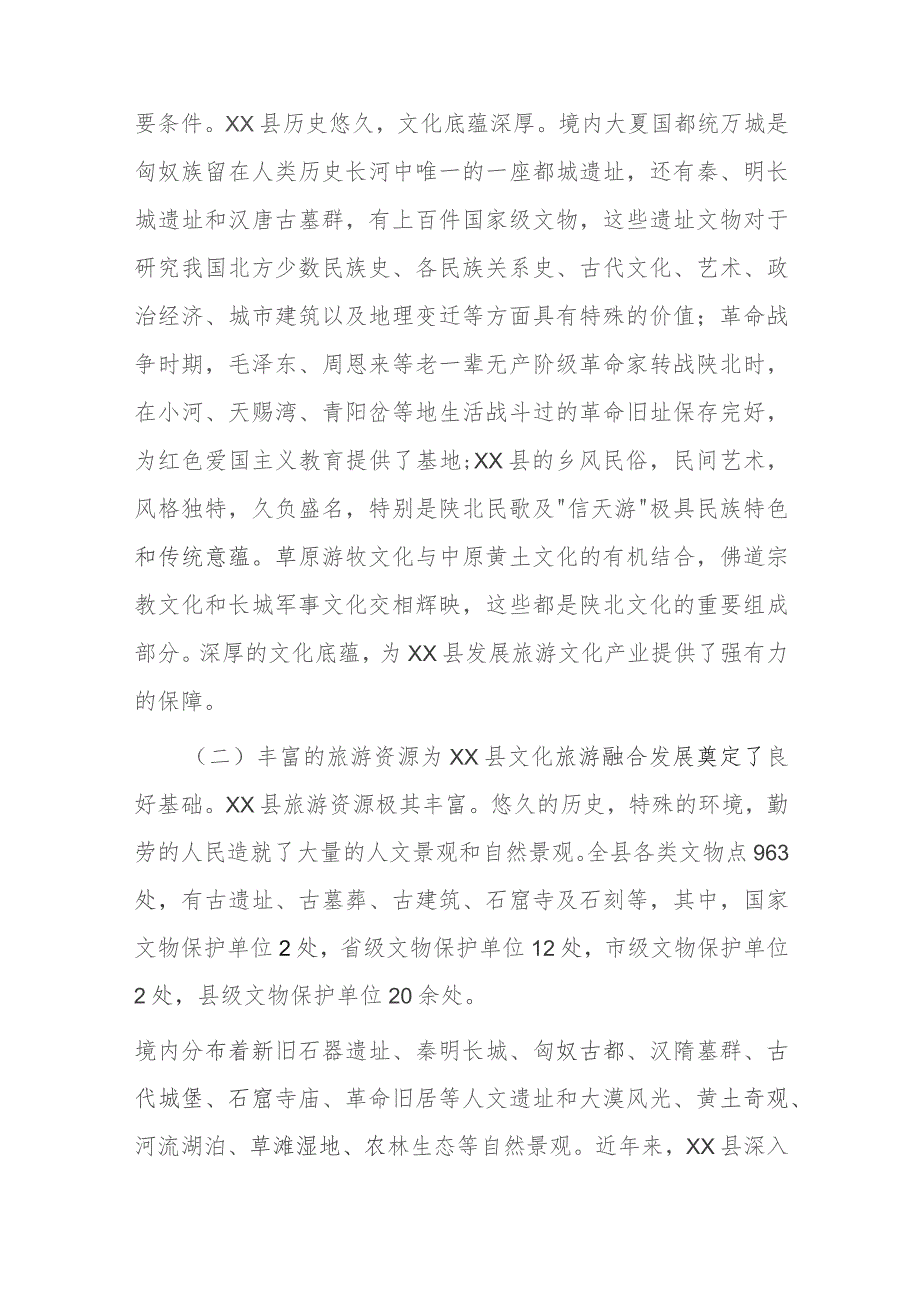 要条件。XX 县历史悠久，文化底蕴深厚。境内大夏国都统万城是
匈奴族留在人类历史长河中唯一的一座都城遗址，还有秦、明长
城遗址和汉唐古墓群，有上百件国家级文物，这些遗址文物对于
研究我国北方少数民族史、各民族关系史、古代文化、艺术、政
治经济、城市建筑以及地理变迁等方面具有特殊的价值；革命战
争时期，毛泽东、周恩来等老一辈无产阶级革命家转战陕北时，
在小河、天赐湾、青阳岔等地生活战斗过的革命旧址保存完好，
为红色爱国主义教育提供了基地;XX 县的乡风民俗，民间艺术，
风格独特，久负盛名，特别是陕北民歌及"信天游"极具民族特色
和传统意蕴。草原游牧文化与中原黄土文化的有机结合，佛道宗
教文化和长城军事文化交相辉映，这些都是陕北文化的重要组成
部分。深厚的文化底蕴，为 XX 县发展旅游文化产业提供了强有力
的保障。
（二）丰富的旅游资源为 XX 县文化旅游融合发展奠定了良
好基础。XX 县旅游资源极其丰富。悠久的历史，特殊的环境，勤
劳的人民造就了大量的人文景观和自然景观。全县各类文物点 963
处，有古遗址、古墓葬、古建筑、石窟寺及石刻等，其中，国家
文物保护单位 2 处，省级文物保护单位 12 处，市级文物保护单位
2 处，县级文物保护单位 20 余处。
境内分布着新旧石器遗址、秦明长城、匈奴古都、汉隋墓群、古
代城堡、石窟寺庙、革命旧居等人文遗址和大漠风光、黄土奇观、
河流湖泊、草滩湿地、农林生态等自然景观。近年来，XX 县深入